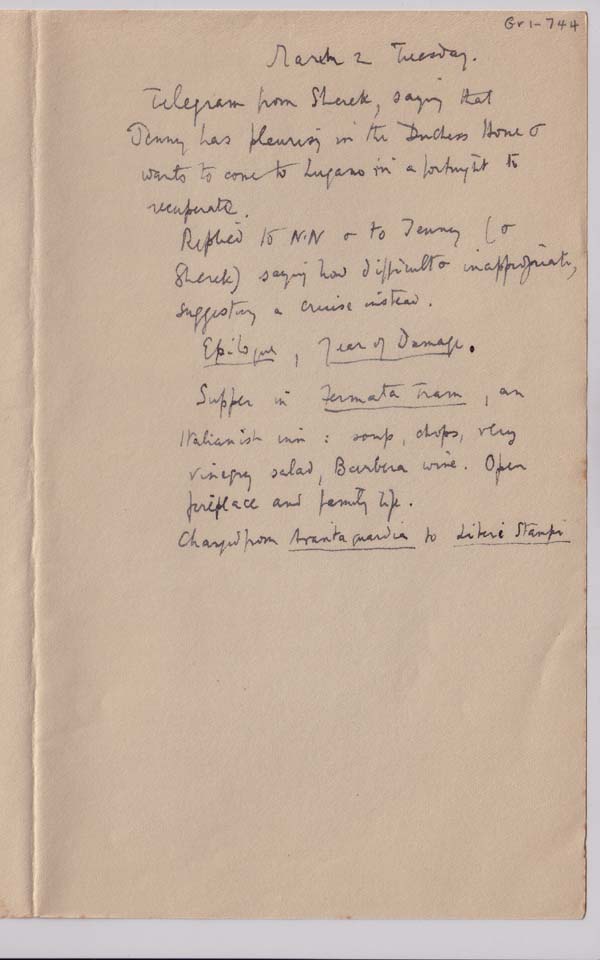 Gr1-744
March 2 Tuesday.
Telegram from Sherek, saying that
Jenny has pleurisy in the Duchess Home &
wants to come to Lugano in a fortnight to
recuperate.
Replied to N.N & to Jenny (&
Sherek) saying how difficult & inappropriate,
suggesting a cruise instead.
Epilogue, Year of Damage.
Supper in Fermata Tram, an
Italianish inn: soup, chops, very
vinegry salad, Barbera wine. Open
fireplace and family life.
Changed from Avantaguardia to Liberi Stampi